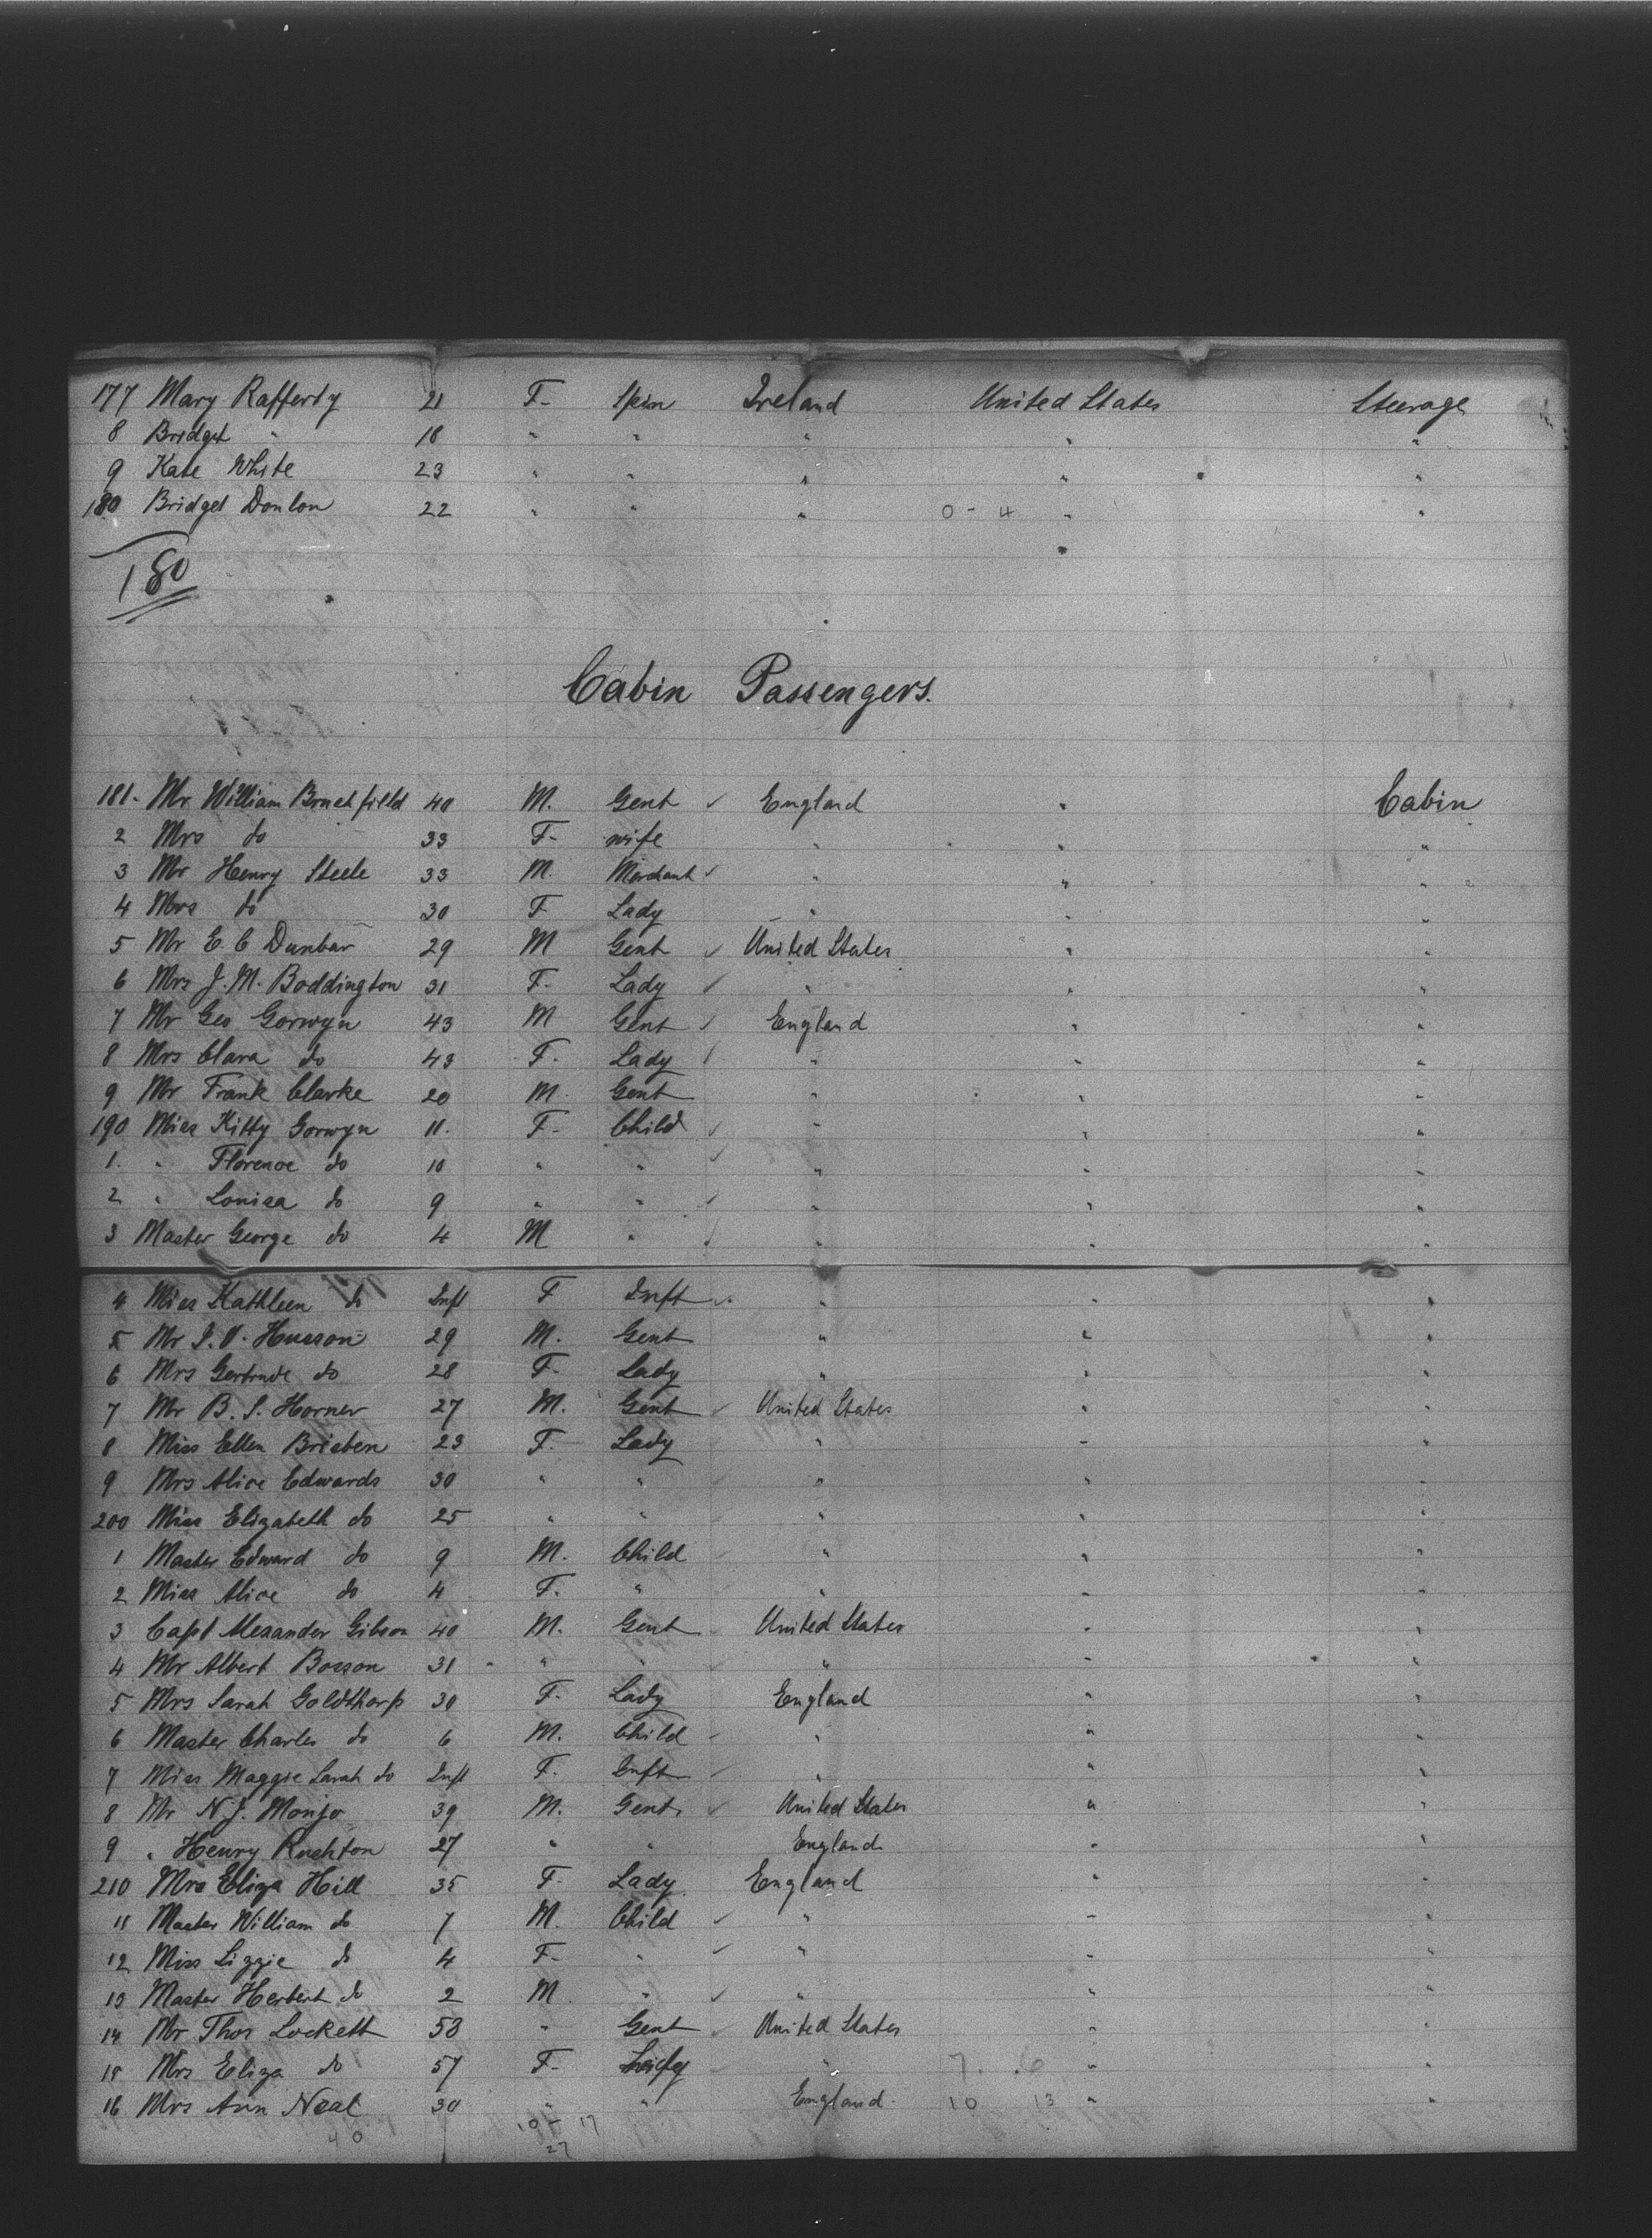 177 Mary Rafferty 21 F- Spin Ireland United States Steerage
8 Bridget " 18 " " " " "
9 Kate White 23 " " " " "
180 Bridget Donlon 22 " " " 0 - 4 " "
180
Cabin Passengers.
181- Mr William Bruchfield 40 M. Gent ✓ England " Cabin
2 Mrs do 33 F- wife " " "
3 Mr Henry Steele 33 M. Merchant ✓ " " "
4 Mrs do 30 F Lady " " "
5 Mr E. C Dunbar 29 M Gent ✓ United States " "
6 Mrs J. M. Boddington 31 F- Lady ✓ " " "
7 Mr Geo Gorwyn 43 M Gent ✓ England " "
8 Mrs Clara do 43 F- Lady ✓ " " "
9 Mr Frank Clarke 20 M Gent " " "
190 Miss Kitty Gorwyn 11. F- Child ✓ " " "
1. " Florence do 10 " " ✓ " " "
2 " Louisa do 9 " " ✓ " " "
3 Master George do 4 M " ✓ " " "
4 Miss Kathleen do Inft F Inft ✓ " " "
5 Mr Husson 29 M. Gent " " "
6 Mrs Gertrude do 28 F- Lady " " "
7 Mr B. S. Horner 27 M. Gent ✓ United States " "
8 Miss Ellen Brisben 23 F- Lady " " "
9 Mrs Alice Edwards 30 " " " " "
200 Miss Elizabeth do 25 " " " " "
1 Master Edward do 9 M. Child " " "
2 Miss Alice do 4 F. " " " "
3 Capt Alexander Gibson 40 M. Gent United States " "
4 Mr Albert Bosson 31 " " " " "
5 Mrs Sarah Goldthorp 30 F- Lady England " "
6 Master Charles do 6 M. Child " " "
7 Miss Maggie Sarah do Inft F. Inft " " "
8 Mr N. J. Monjo 39 M. Gent. ✓ United States " "
9 " Henry Rushton 27 " " England " "
210 Mrs Eliza Hill 35 F- Lady England " "
11 Master William do 7 M. Child ✓ " " "
12 Miss Lizzie do 4 F- " ✓ " " "
13 Master Herbert do 2 M " ✓ " " "
14 Mr Thos Lockett 58 " Gent ✓ United States " "
15 Mrs Eliza do 57 F- " 7. .6 " "
16 Mrs Ann Neal 30 " " England 10 13 " "
40 10 - 17
27